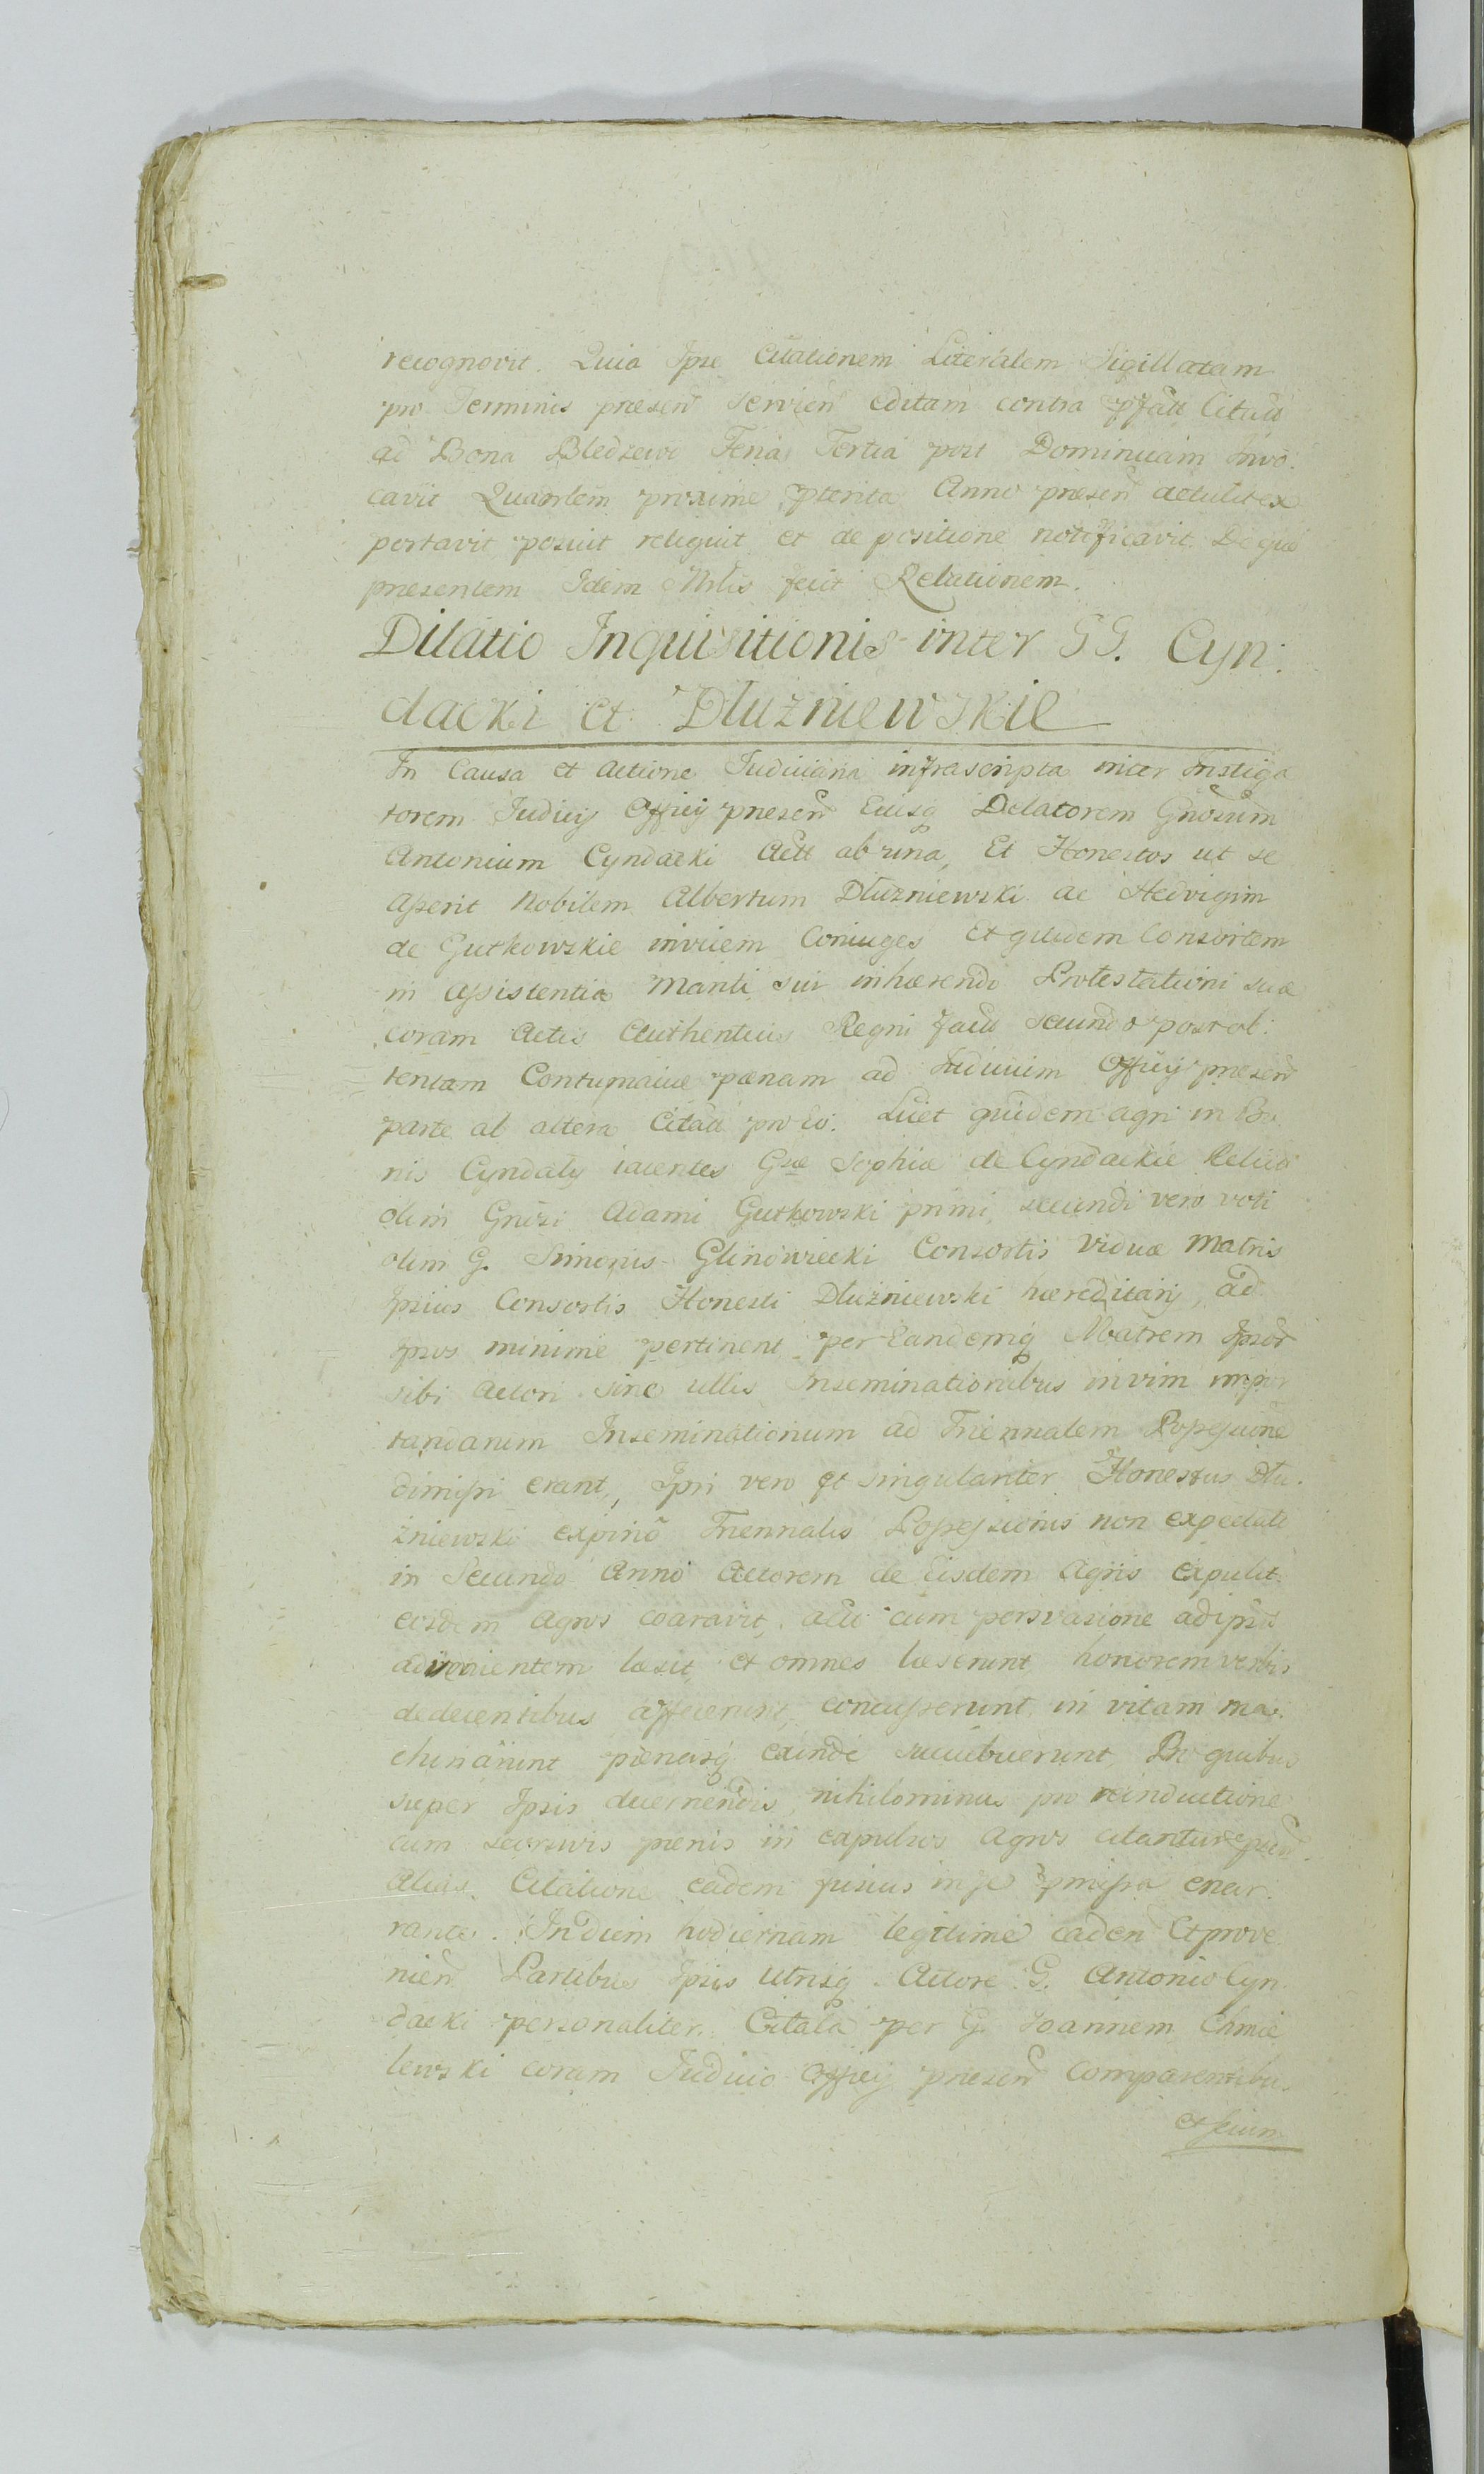 recognovit. Quia Ipse Citationem Literalem Sigillatam
pro Terminis presen Servien editam contra pfatt Citatt
ad Bona Bledzewo Feria Tertia post Dominicam Invo:
cavit Quantem proxime pterita Anno presen detulit ex
portavit posuit reliquit et de positione notificavit. De quo
presentem Idem Mtlis fecit Relationem.
Dilatio Inquisitionis inter GG. Cyn:
dacki et Dłużniewskie
In Causa et Actione Judiciaria infrascripta inter Instiga
torem Judicij Officij presen Eiusq Delatorem Gnosum
Antonium Cyndacki Actt ab una, Et Honestos ut se
asserit Nobilem Albertum Dłużniewski ac Hedvigim
de Gutkowskie invicem Coniuges et quidem Consortem
in assistentia Mariti sui inhærendo Protestationi suæ
coram Actis Authenticis Regni factæ secundo post ob:
tentam Contumaciæ pænam ad Iudicium Officij presen
parte ab altera Citatt pro eo. Licet quidem agri in Bo
nis Cyndaty iacentes Gsæ Sophiæ de Cyndackie Relictæ
olim Gnosi Adami Gutkowski primi, secundi vero voti
olim G. Simonis Glinowiecki Consortis viduæ Matris
Ipsius Consortis Honesti Dłużniewski hæreditarij, ad
Ipsos minime pertinent per Eandemq Matrem Ipsor
sibi Actori sine ullis Inseminationibus in vim impor
tandarum Inseminationum ad Triennalem Possessione
dimissi erant, Ipsi vero et singulariter Honestus Dłu.
żniewski expirao Triennalis Possessionis non expectate
in Secundo Anno Actorem de eisdem Agris expulit.
eosdem agros coaravit, actt cum persvasione ad ipsos
advenientem læsit et omnes læserunt honorem verbis
dedecentibus affecerunt, concusserunt in vitam ma:
chinarunt pænasq exinde succubuerunt, Pro quibus
super Ipsis decernendis, nihilominus pro reinductione
cum seorsivis pænis in expulsos agros citantur psen.
Alias Citatione eadem fusius in se pmissa enar:
rante. In diem hodiernam legitime caden Et prove
nien Partibus Ipsis Utrisq Actore G. Antonio Cyn
dacki personaliter. Citata per G. Joannem Chmie
lewski coram Judicio Officij presen Comparentibus
et secum